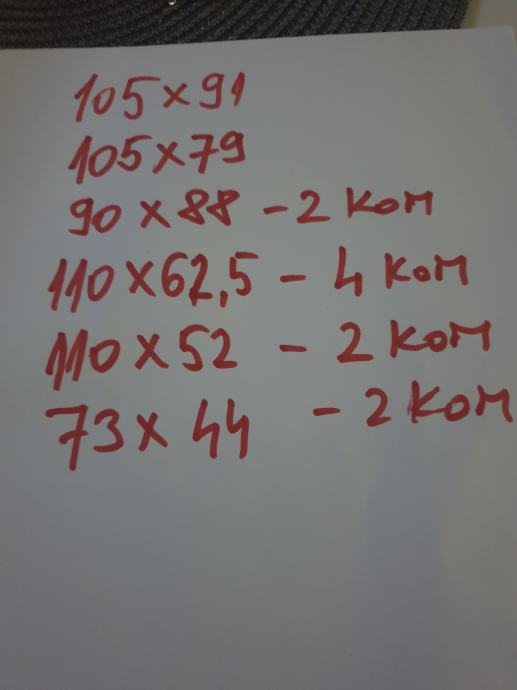 105 x 91
105 x 79
90 x 88 - 2 ком
110 x 62,5 - 4 ком
110 x 52 - 2 ком
73 x 44 - 2 ком